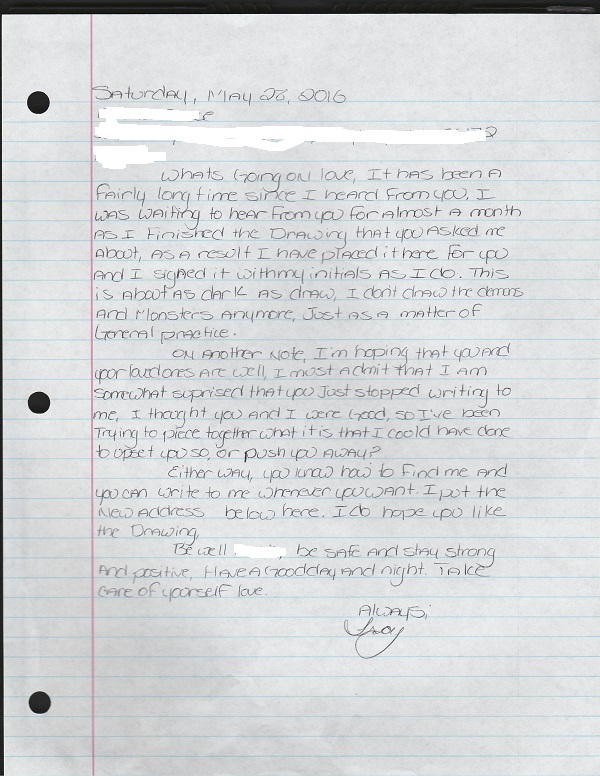 Saturday, May 28, 2016
Whats Going on love, It has been A
fairly long time since I heard from you. I
was waiting to hear from you for almost a month
As I finished the Drawing that you Asked me
About, as a result I have placed it here for you
And I signed it with my initials as I do. This
is About as dark as draw, I don't draw the demons
And Monsters anymore, Just as a matter of
General practice.
On Another Note, I'm hoping that you and
your loved ones are well, I must Admit that I am
Somewhat suprised that you Just stopped writing to
me, I thought you and I were Good, so I've been
Trying to piece together what it is that I could have done
to upset you so, or push you Away?
Either way, you know how to find me and
you can write to me whenever you want. I put the
New Address below here. I do hope you like
the Drawing,
Be well , be safe and stay strong
And positive, Have A Good day and night. Take
care of yourself love.
Always;